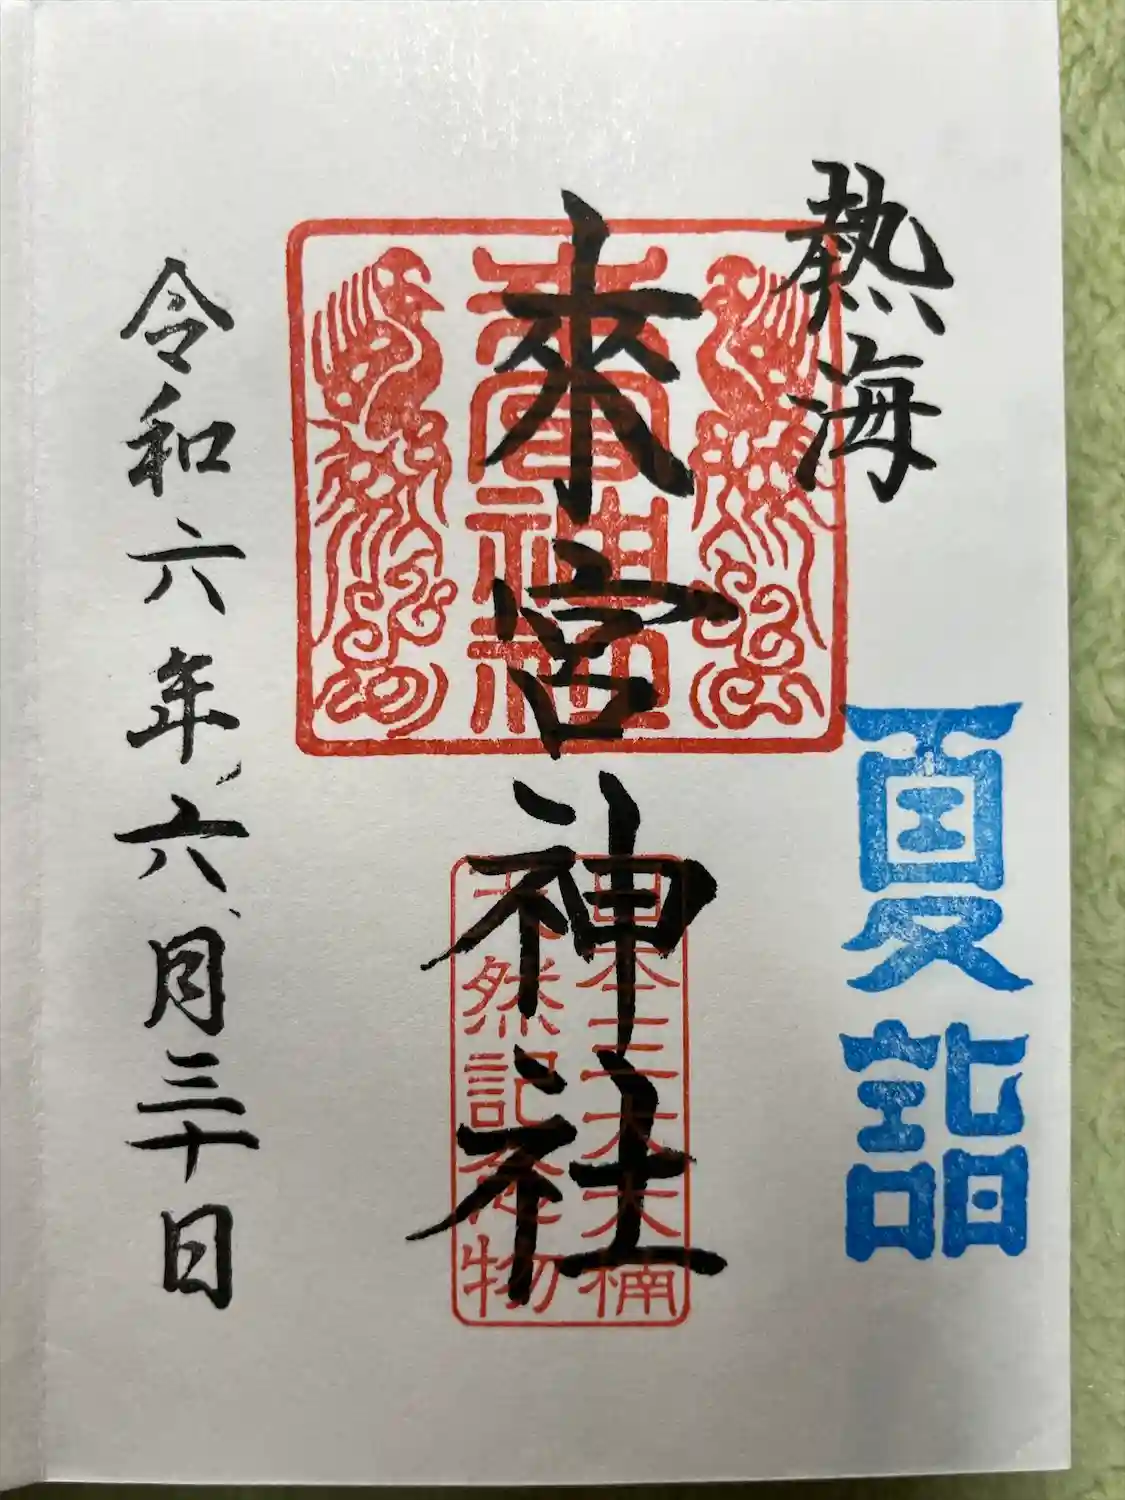 熱海
夏詣
來宮神社
來宮神社
日本三大大楠
天然記念物
令和六年六月三十日